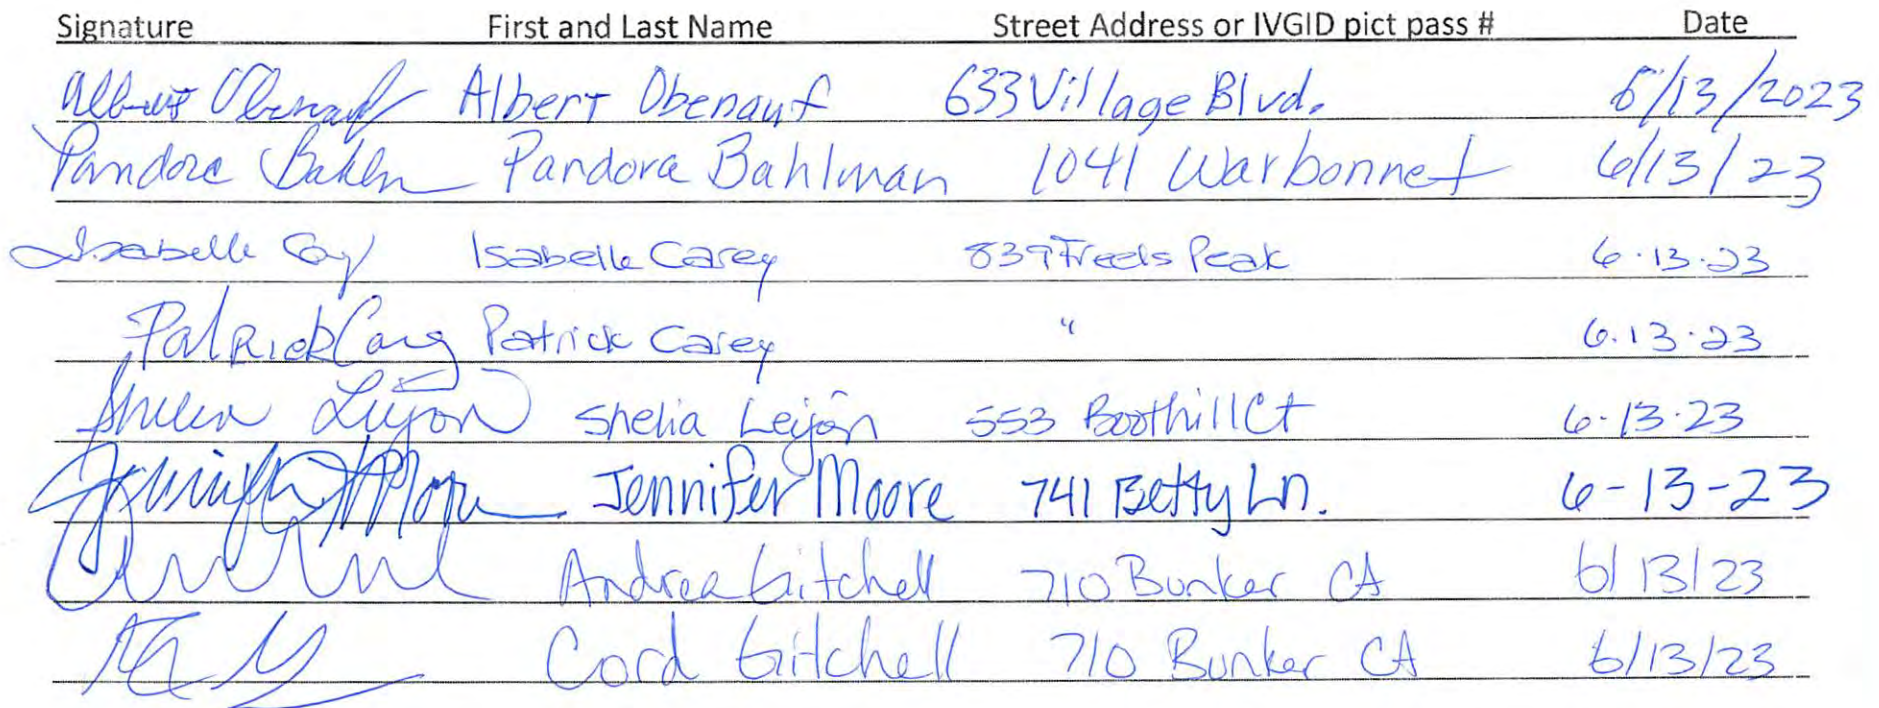 Signature First and Last Name Street Address or IVGID pict pass # Date
Albert Obenauf Albert Obenauf 633 Village Blvd. 6/13/2023
Pandora Bahlman Pandora Bahlman 1041 Warbonnet 6/13/23
Isabelle Carey Isabelle Carey 839 Freels Peak 6.13.23
Patrick Carey Patrick Carey " 6.13.23
Leijon Shelia Leijon 553 Boothill Ct 6.13.23
Jennifer Moore Jennifer Moore 741 Betty Ln. 6-13-23
Andrea Gitchell 710 Bunker Ct 6/13/23
Cord Gitchell 710 Bunker Ct 6/13/23